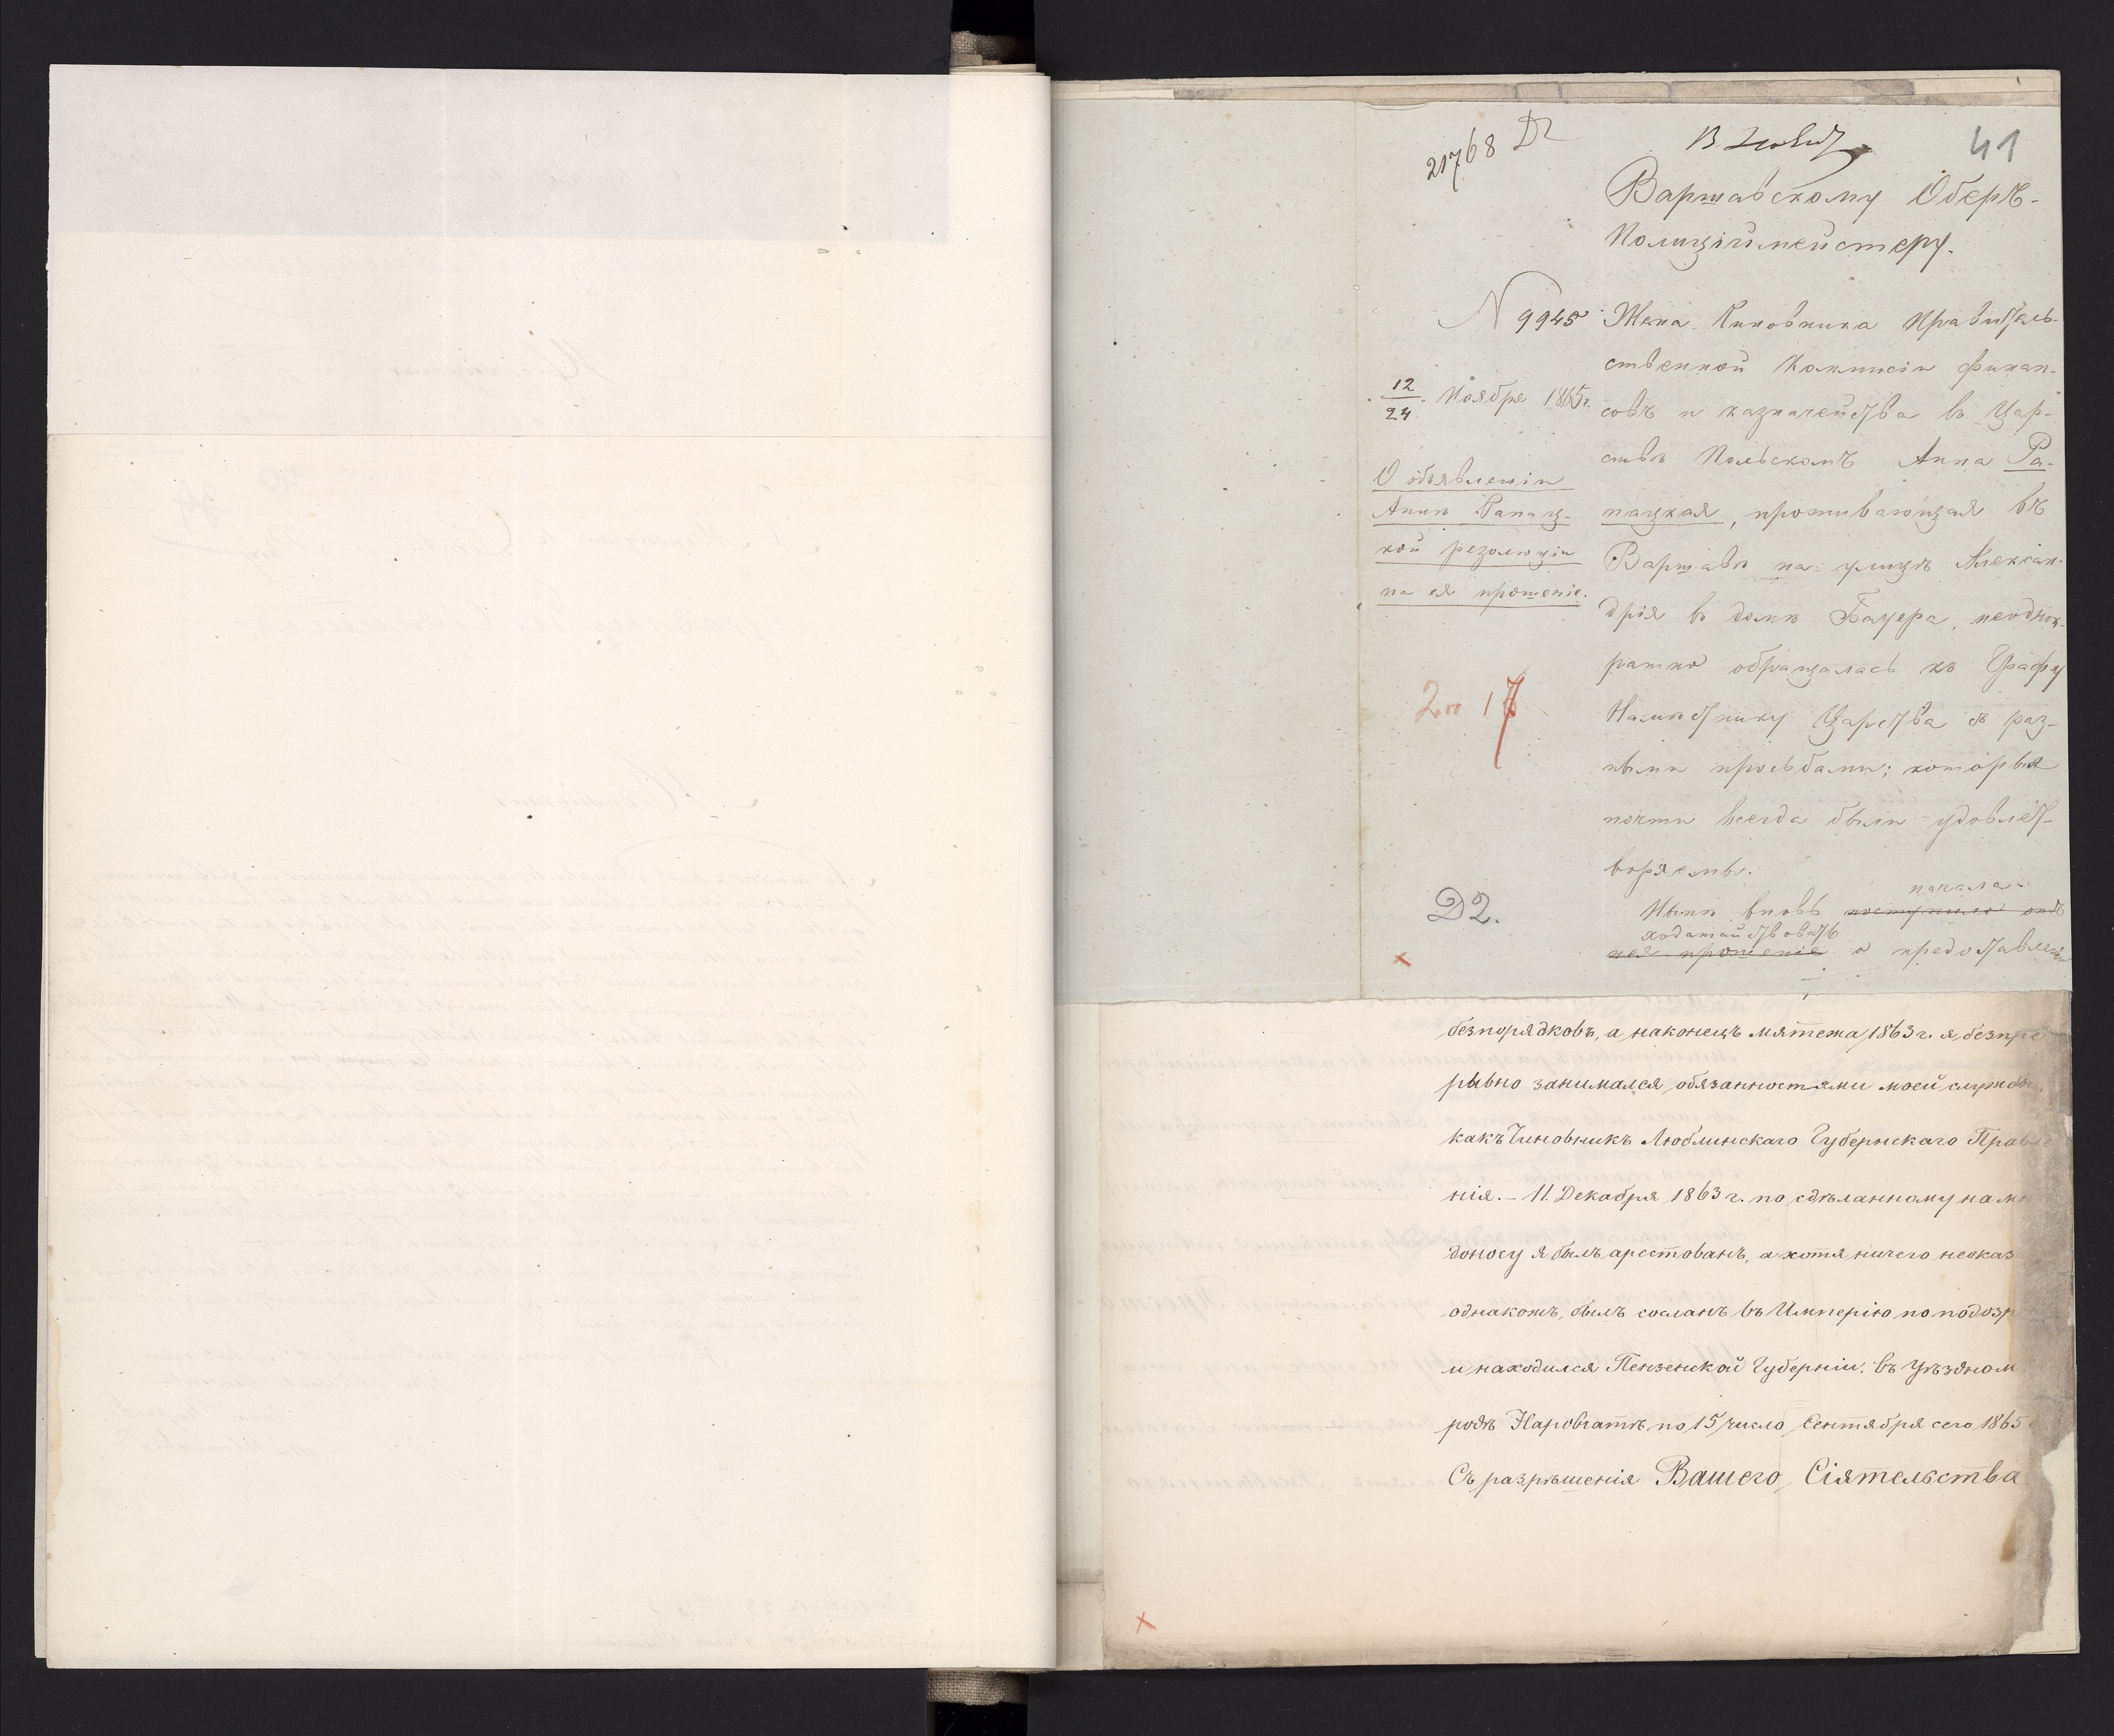 21768 D2
41
Варшавскому Оберъ-
Полиціймейстеру.
N 9945
12/24 Ноября 1865 г.
О объявленіи
Аннѣ Рапац-
кой резолюціи
на ея прошеніе.
2
17
D2.
Жена Чиновника Правитель-
ственной Коммисіи финан-
совъ и казначейства въ Цар-
ствѣ Польскомъ Анна Ра-
пацкая, проживающая въ
Варшавѣ на улицѣ Алексан-
дрія въ домѣ Бауера, неоднок-
ратно обращалась къ Графу
Намѣстнику Царства съ раз-
ными просьбами; которыя
почти всегда были удовлет-
воряемы.
начала
Нынѣ вновь поступило отъ
ходатайствовать
нея прошеніе о предоставленіи
безпорядковъ, а наконецъ мятежа 1863 г. я, безпре
рывно занимался обязанностями моей службы,
какъ Чиновникъ Люблинскаго Губернскаго Правле
нія. - 11 Декабря 1863 г. по сдѣланному на м
доносу я былъ арестованъ, а хотя ничего неоказ
однакожъ, былъ сосланъ въ Имперію по подозр
и находился Пензенской Губерніи, въ Уѣздном
родѣ Наровчатѣ, по 15 число Сентября сего 1865
Съ разрѣшенія Вашего Сіятельства